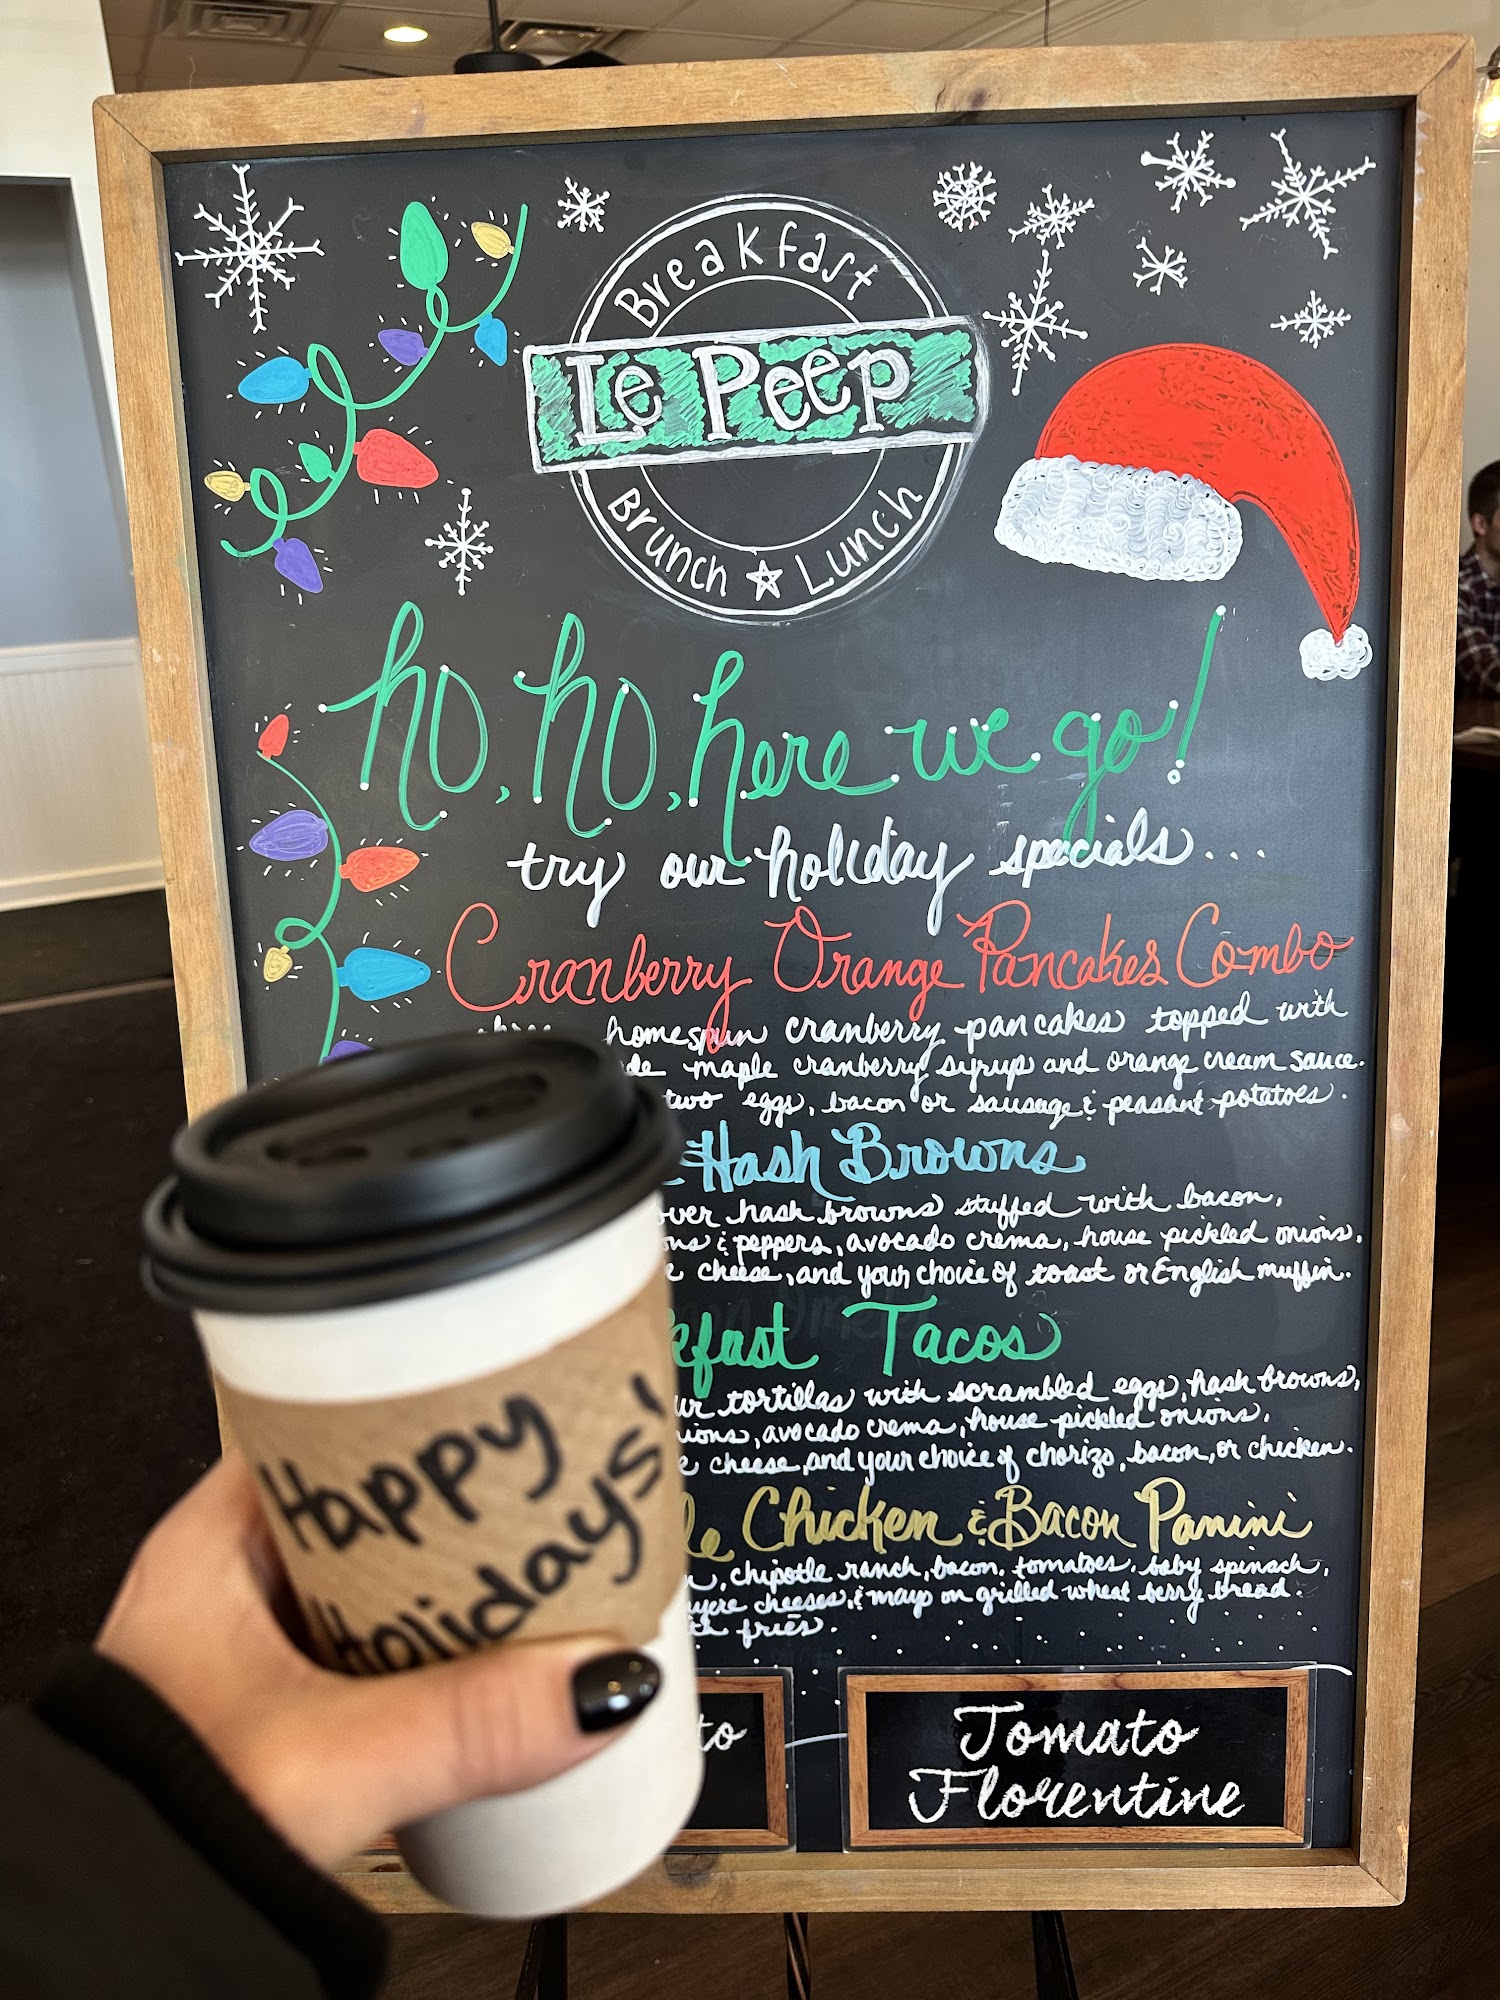 Breakfast
Le Peep
Brunch ☆ Lunch
ho, ho, here we go!
try our holiday specials...
Cranberry Orange Pancakes Combo
homespun cranberry pancakes topped with
maple cranberry syrup and orange cream sauce.
two eggs, bacon or sausage & peasant potatoes.
Hash Browns
over hash browns stuffed with bacon,
& peppers, avocado crema, house pickled onions.
cheese, and your choice of toast or English muffin.
Tacos
tortillas with scrambled eggs, hash browns,
avocado crema, house pickled onions,
cheese, and your choice of chorizo, bacon, or chicken.
Chicken & Bacon Panini
chipotle ranch, bacon, tomatoes, baby spinach,
cheeses, & mayo on grilled wheat berry bread.
fries.
Tomato
Florentine
Happy
Holidays!